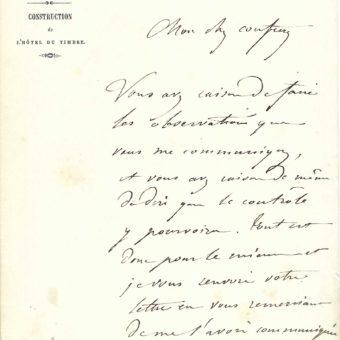 CONSTRUCTION
de
L'HÔTEL DU TIMBRE.
Mon cher confrère
Vous avez raison de faire
les observations que
vous me communiquez,
et vous avez raison de même
de dire que le contrôle
y pourvoira. Tout est
donc pour le mieux et
je vous renvoie votre
lettre en vous remerciant
de me l'avoir communiquée